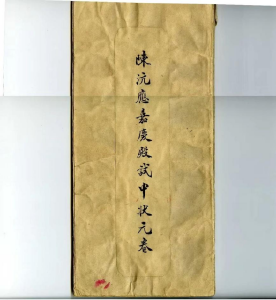 陳沆應嘉慶殿試中狀元卷